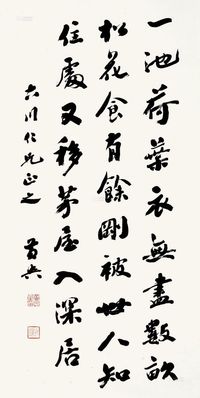 一池荷葉衣無盡數畝
松花食有餘剛被世人知
住處又移茅屋入深居
六川仁兄正之
黃興